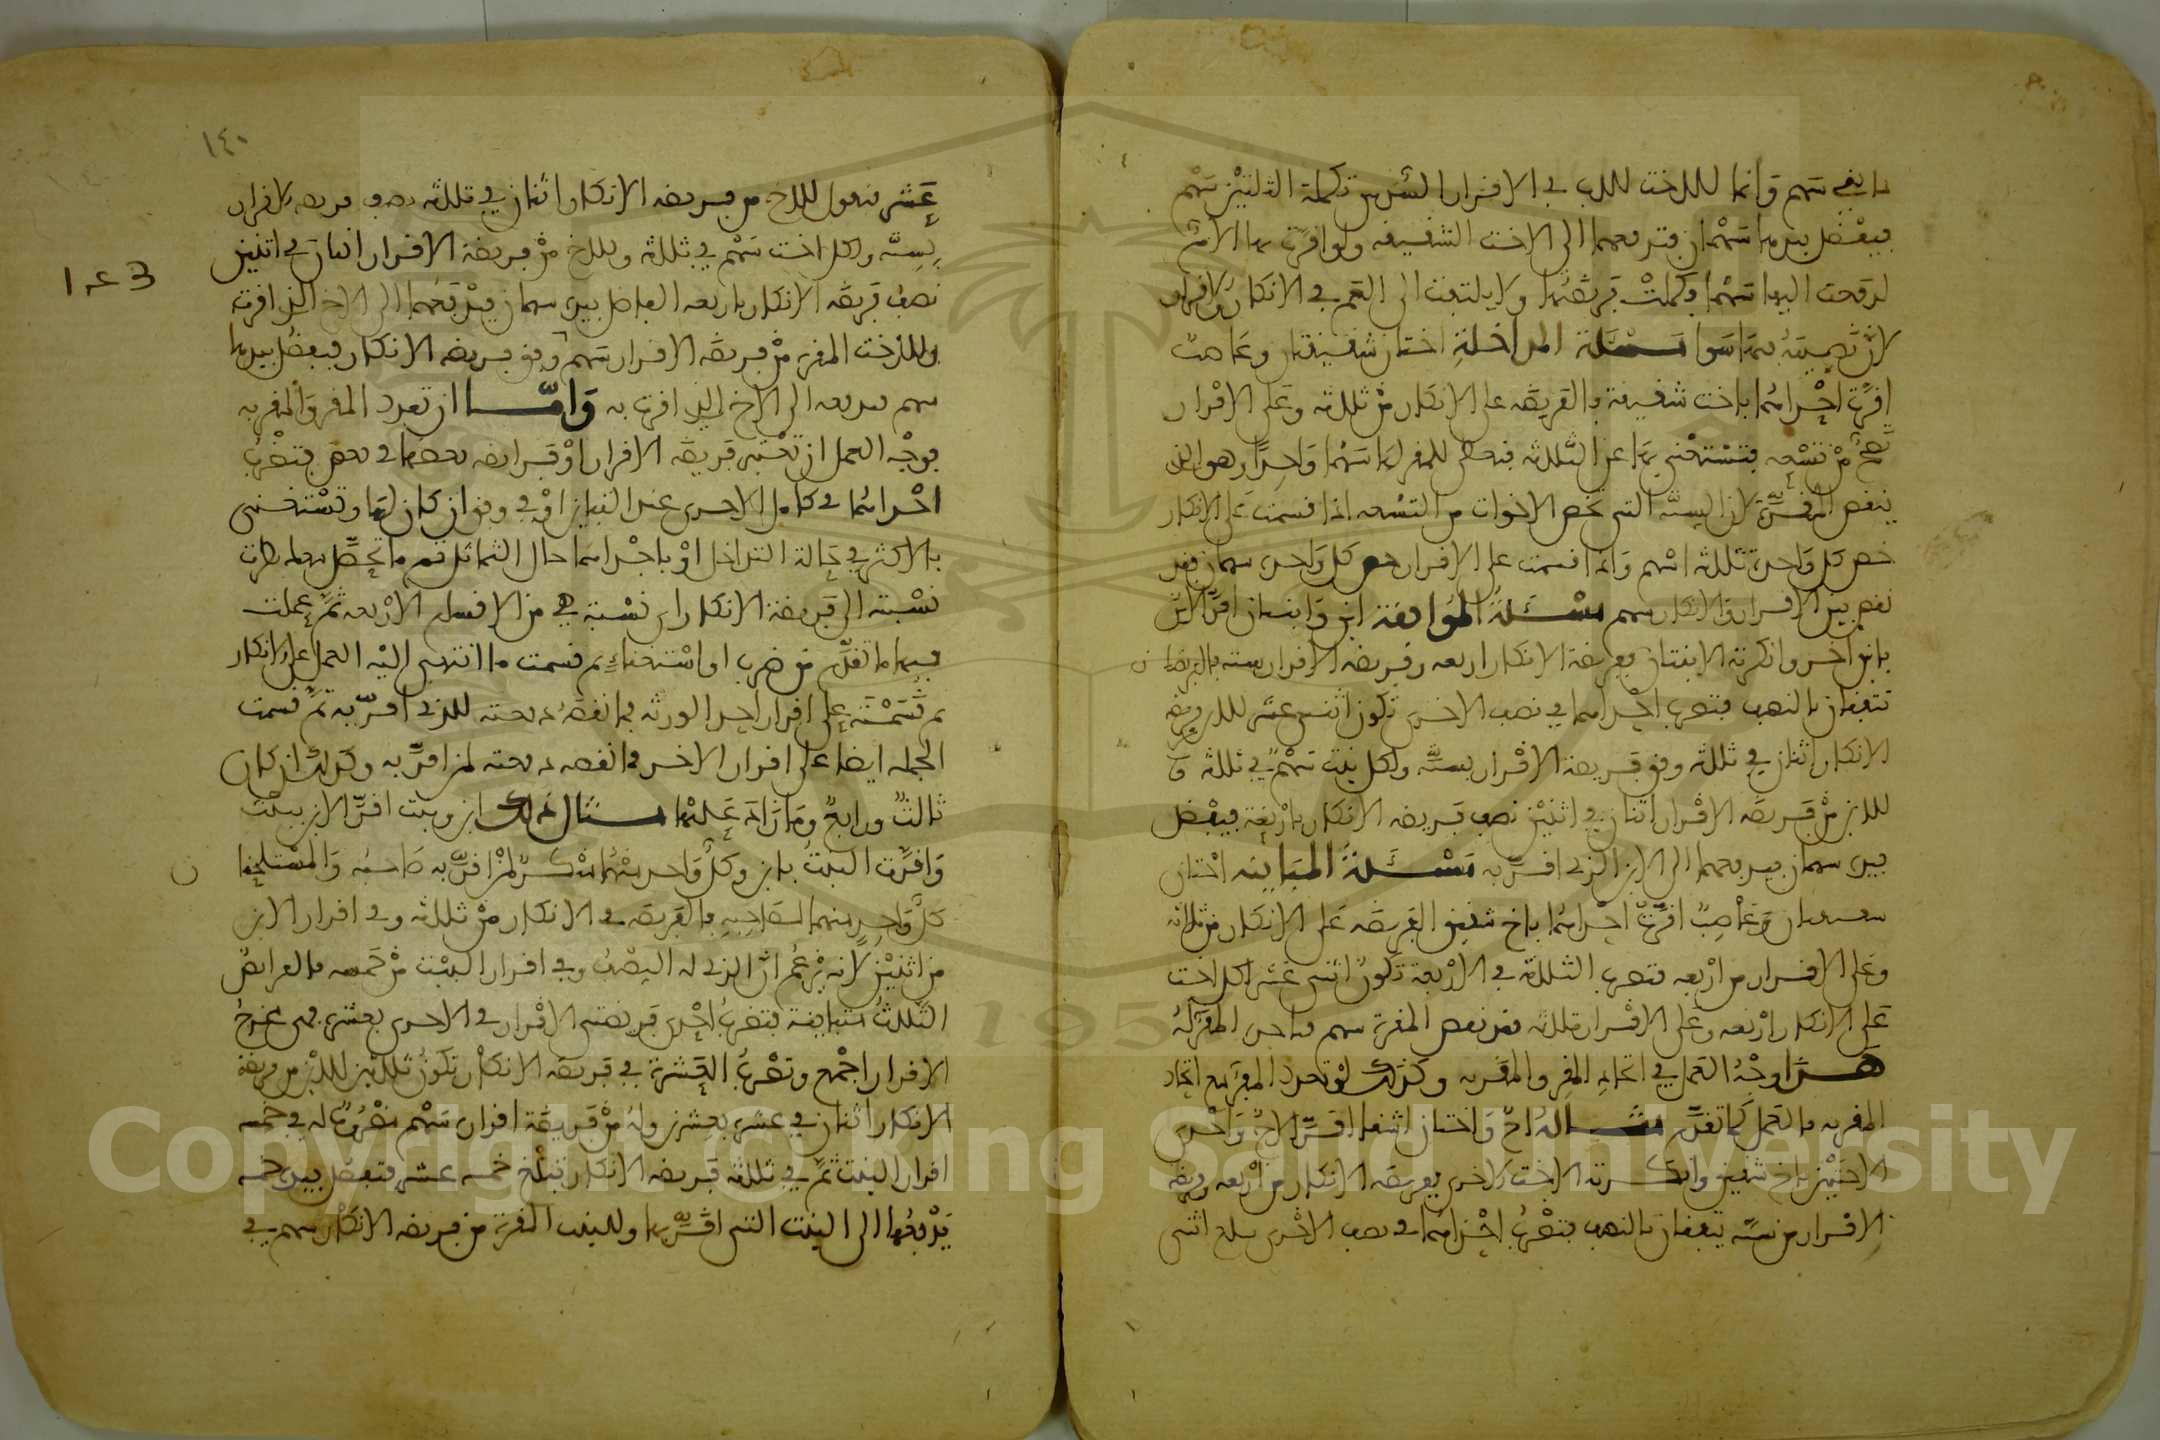 ما بقى سهم وانما للاخت للاب في الاقرار السدس تكملة الثلثين سهم
فيفضل بيدها سهمان فتدفعهما الى الاخت الشقيقة ولو اقرت بها الام
لدفعت اليها سهما وكملت فريضتها ولا يلتفت الى العم في الانكار والاقرار
لان نصيبه فيهما سوا مسئلة المداخلة اختان شقيقتان وعاصب
اقرت احداهما باخت شقيقة فالفريضة على الانكار من ثلثة وعلى الاقرار
تصح من تسعة فتستغني بها عن الثلثة فتعطى للمقر لها سهما واحدا وهو الذي
ينقص المقرة لان الستة التي تخص الاخوات من التسعة اذا قسمت على الانكار
خص كل واحدة ثلثة اسهم واذا قسمت على الاقرار خص كل واحدة سهمان فقد
نقص بين الاقرار والانكار سهم مسئلة الموافقة ابن وابنتان اقر الابن
بابن اخر وانكرته الابنتان ففريضة الانكار اربعة وفريضة الاقرار ستة فالفريضتان
تتفقان بالنصف فتضرب احداهما في نصف الاخرى تكون اثنى عشر للابن من فريضة
الانكار اثنان في ثلثة وفق فريضة الاقرار بستة ولكل بنت سهم في ثلثة و
للابن من فريضة الاقرار اثنان في اثنين نصف فريضة الانكار باربعة فيفضل
بيده سهمان فيدفعهما الى الابن الذي اقر به مسئلة المباينة اختان
شقيقتان وعاصب اقرت احداهما باخ شقيق الفريضة على الانكار من ثلاثة
وعلى الاقرار من اربعة فتضرب الثلثة في الاربعة تكون اثنى عشر لكل اخت
على الانكار اربعة وعلى الاقرار ثلثة فقد نقص المقرة سهم فياخذه المقر له
هذا وجه العمل في اتحاد المقر والمقر به وكذلك لو تعدد المقر مع اتحاد
المقر به فالعمل كما تقدم مثاله اخ واختان اشقا اقر الاخ واحدى
الاختين باخ شقيق وانكرته الاخت الاخرى ففريضة الانكار من اربعة وفريضة
الاقرار من ستة يتفقان بالنصف فتضرب احداهما في نصف الاخرى تبلغ اثنى
١٤٠
عشر فنقول للاخ من فريضة الانكار اثنان في ثلثة نصف فريضة الاقرار
بستة ولكل اخت سهم في ثلثة وللاخ من فريضة الاقرار اثنان في اثنين
نصف فريضة الانكار باربعة الفاضل بيده سهمان فيدفعهما الى الاخ الذي اقر به
وللاخت المقرة من فريضة الاقرار سهم وفق فريضة الانكار فيفضل بيدها
سهم تدفعه الى الاخ الذي اقرت به واما ان تعدد المقر والمقر به
فوجه العمل ان تعتبر فريضة الاقرار او فرايضه بعضها في بعض فتضرب
احداهما في كامل الاخرى عند التباين او في وفقه ان كان لها وتستغني
بالاكثر في حالة التداخل او باحداهما حال التماثل ثم ما تحصل معك نظرت
نسبته الى فريضة الانكار اي نسبة هي من الاقسام الاربعة ثم عملت
فيها ما تقدم من ضرب او استغناء ثم قسمت ما انتهى اليه العمل على الانكار
ثم قسمته على اقرار احد الورثة فما نقصه دفعته للذي اقر به ثم قسمت
الجملة ايضا على اقرار الاخر فما نقصه دفعته لمن اقر به وكذلك ان كان
ثالث ورابع وما زاد عليهما مثال ذلك ابن وبنت اقر الابن ببنت
واقرت البنت بابن وكل واحد منهما منكر لمن اقر به صاحبه والمستلحقان
كل واحد منهما لصاحبه فالفريضة في الانكار من ثلثة وفي اقرار الابن
من اثنين لانه يزعم ان الذي له النصف وفي اقرار البنت من خمسة فالفرايض
الثلث متباينة فتضرب احدى فريضتي الاقرار في الاخرى بعشرة هي مخرج
الاقرار اجمع وتضرب العشرة في فريضة الانكار تكون ثلثين للابن من فريضة
الانكار اثنان في عشرة بعشرين وله من فريضة اقراره سهم مضروب له في خمسة
اقرار البنت ثم في ثلثة فريضة الانكار تبلغ خمسة عشر فتفضل بيده خمسة
يدفعها الى البنت التي اقر بها وللبنت المقرة من فريضة الانكار سهم في